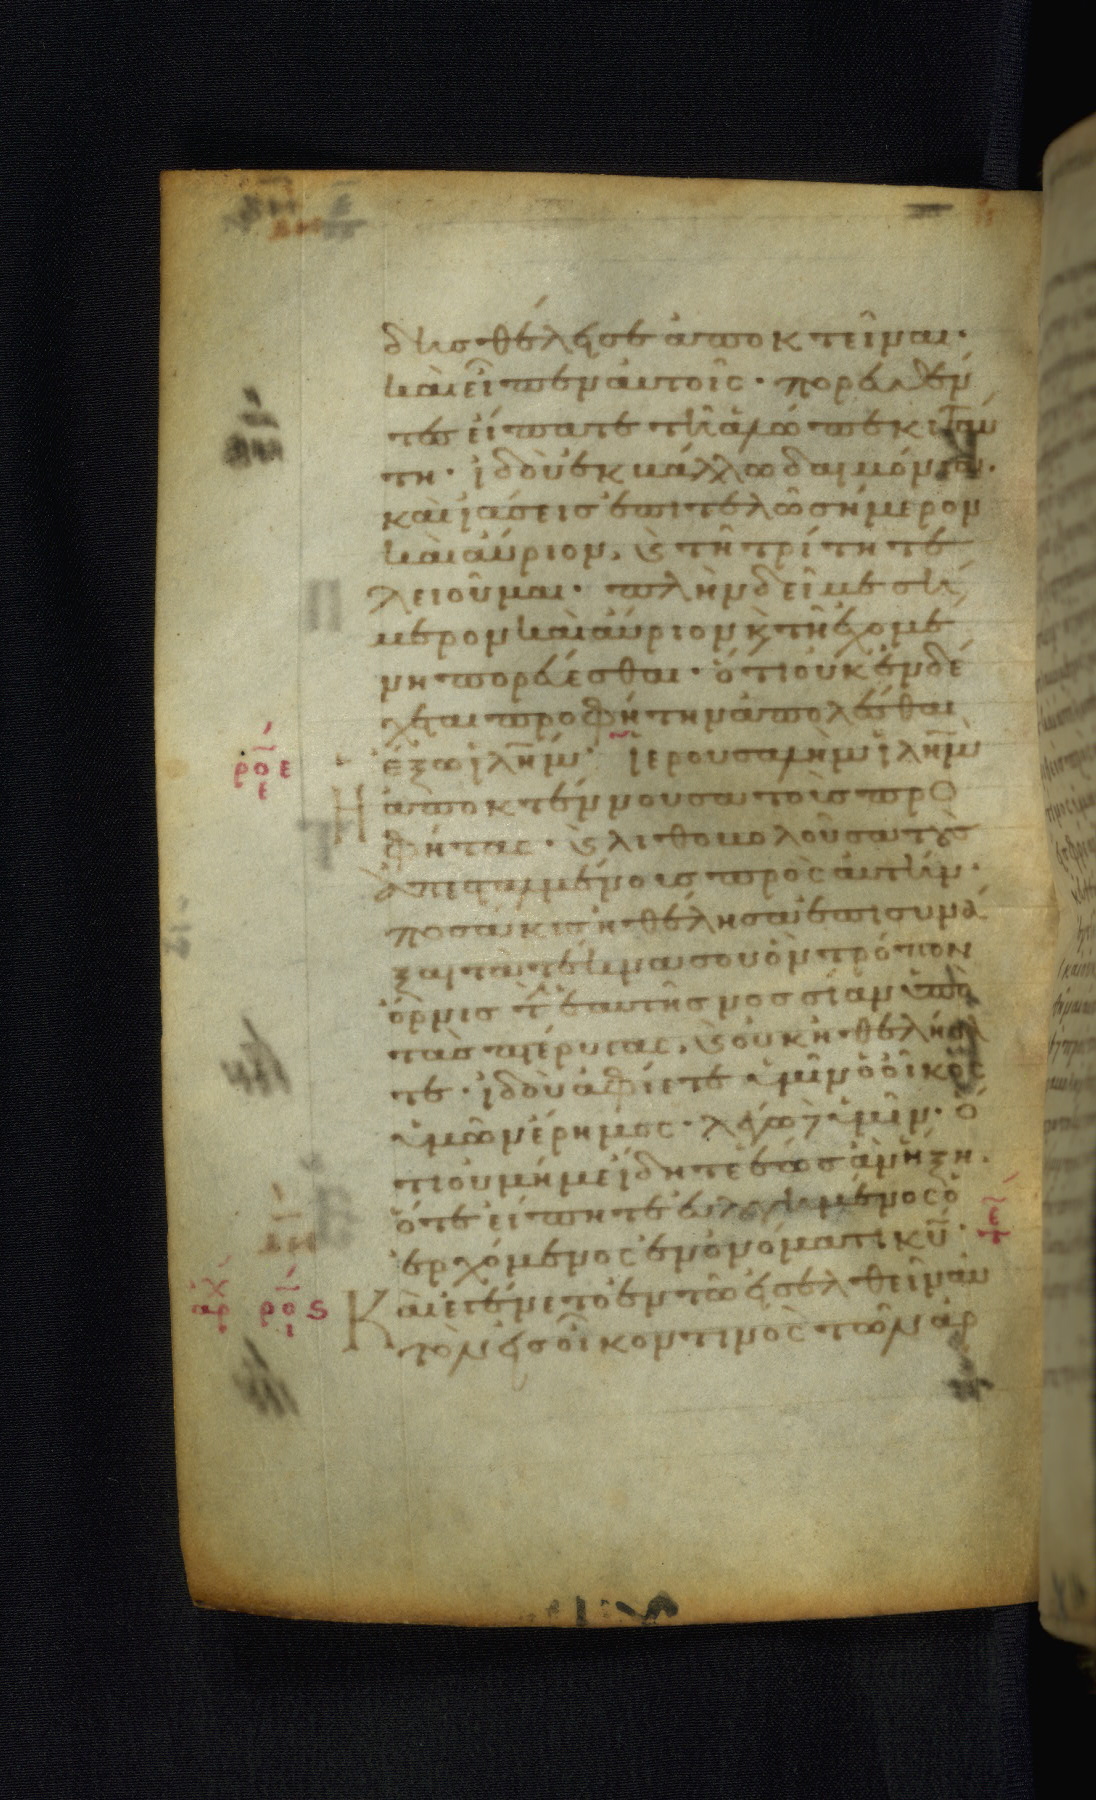 δησ θέλει σε ἀποκτεῖναι·
καὶ εἶπεν αὐτοῖς· πορευθέν
τες εἴπατε τῆ ἀλώπεκι ταύ
τη· ἰδοὺ ἐκβάλλω δαιμόνια·
καὶ ἰάσεις ἐπιτελῶ σήμερον
καὶ αὔριον, ϗ τῆ τρίτη τε
λειοῦμαι· πλὴν δεῖ με σή
μερον καὶ αὔριον ϗ τῆ ἐχομέ
νη πορεύεσθαι· ὅτι οὐκ ἐνδέ
χεται προφήτην ἀπολέσθαι
ρ̄ο̄ε ἔξω ἰλη̄μ· Ἰερουσαλὴμ ἰλη̄μ
ε
Ἡ ἀποκτέννουσα τοὺς προ
φήτας· ϗ λιθοβολοῦσα τοὺς
ἀπεσταλμένους πρὸς αὐτήν·
ποσάκις ἠθέλησα ἐπισυνά
ξαι τὰ τέκνα σου ὃν τρόπον
ὄρνις τ̀ ἑαυτῆς νοσσίαν ὑπὸ
τὰς πτέρυγας, ϗ οὐκ ἠθελήσα
τε· ἰδοὺ ἀφίεται ὑμῖν ὁ οἶκος
ὑμῶν ἔρημος· λέγω δὲ ὑμῖν· ὅ
τι οὐ μή με ἴδητε ἕως ἂν ἥξη·
ὅτε εἴπητε εὐλογημένος ὁ
ἐρχόμενος ἐν ὀνόματι κ̄ῡ·
ἀρχ ρ̄ο̄ς Καὶ ἐγένετο ἐν τῶ εἰσελθεῖν αὐ
ι
τὸν εἰς οἶκον τινὸς τῶν ἀρ